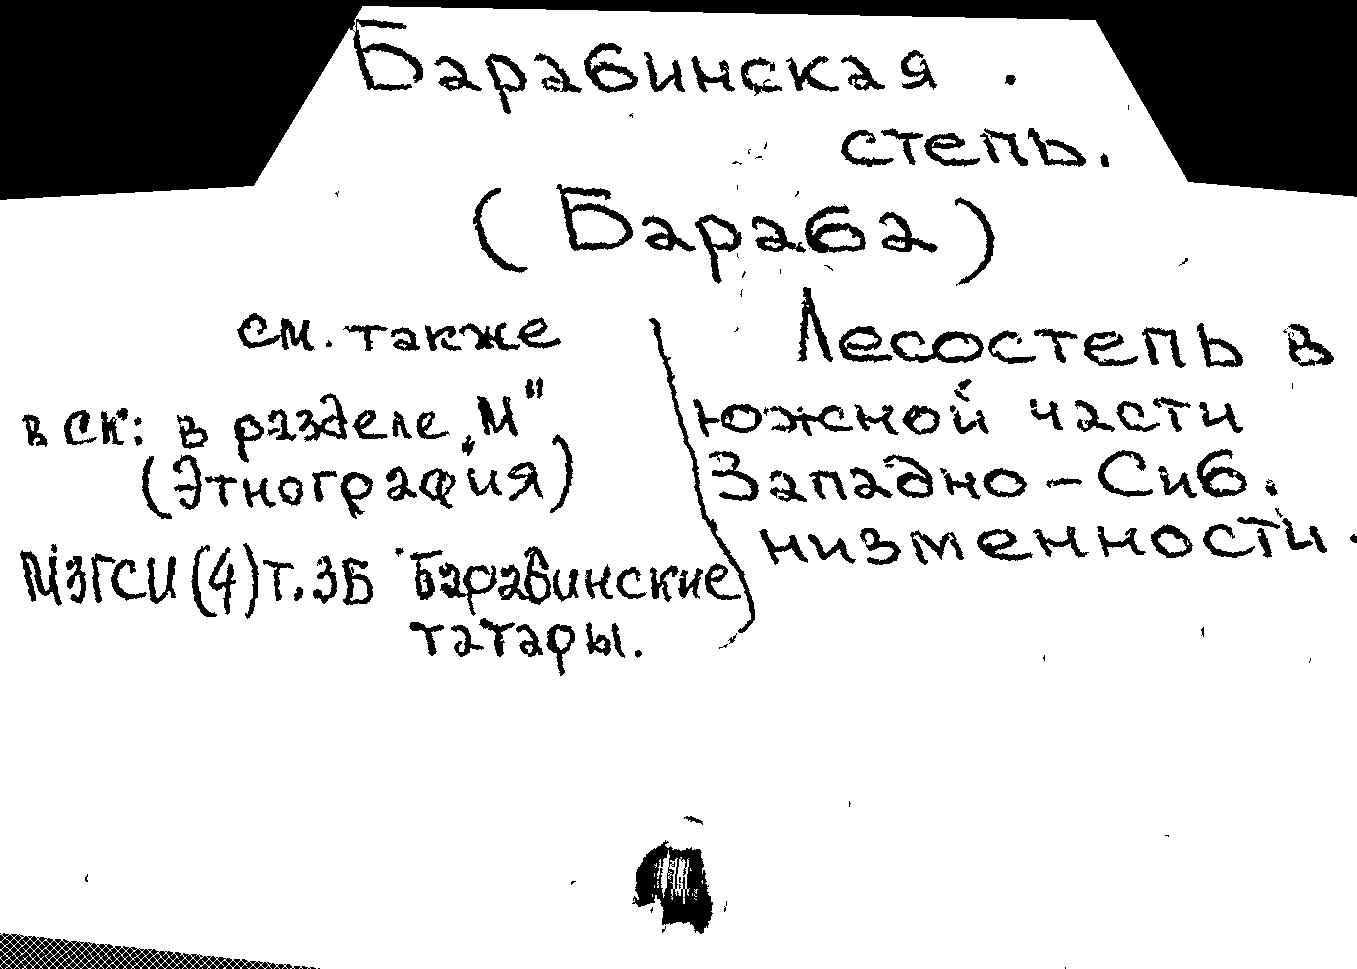 Барабинская
степь.
(Бараба)
см. также
в СК: в разделе „М"
(Этнография)
М3ГСИ(4)Т.3Б Барабинские
татары.
Лесостепь в
южной части
Западно-Сиб.
низменности.